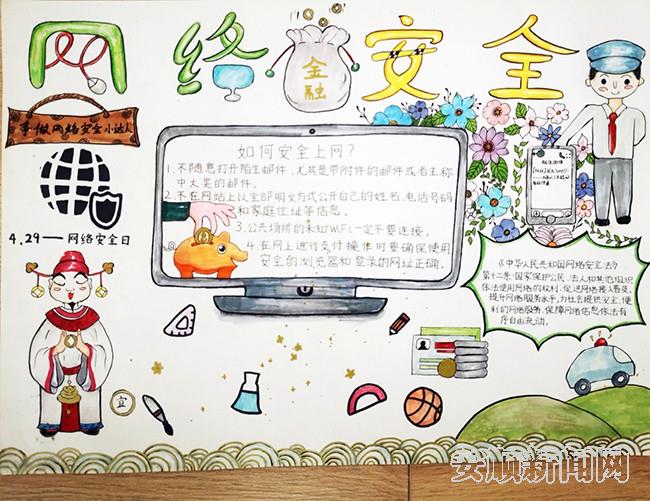 网络安全
金融
争做网络安全小达人
4.29——网络安全日
如何安全上网?
1.不随意打开陌生邮件,尤其是带附件的邮件或者主称
中大奖的邮件。
2.不在网站上以全部明文方式公开自己的姓名、电话号码
和家庭住址等信息。
3.公共场所的未知WiFi一定不要连接。
4.在网上进行支付操作时要确保使用
安全的浏览器和登录的网址正确。
《中华人民共和国网络安全法》
第十二条:国家保护公民、法人和其他组织
依法使用网络的权利,促进网络接入普及,
提升网络服务水平,为社会提供安全、便
利的网络服务,保障网络信息依法有
序自由流动。
宜
安顺新闻网